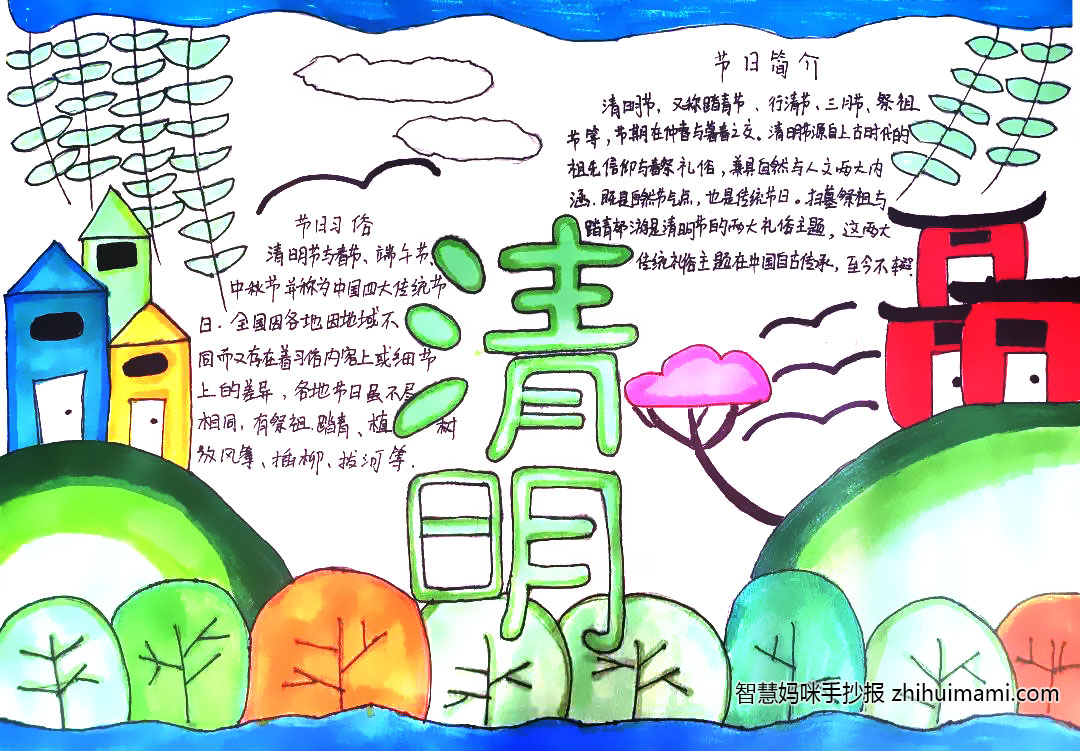 节日简介
清明节，又称踏青节、行清节、三月节、祭祖
节等，节期在仲春与暮春之交。清明节源自上古时代的
祖先信仰与春祭礼俗，兼具自然与人文两大内
涵，既是自然节气点，也是传统节日。扫墓祭祖与
踏青郊游是清明节的两大礼俗主题，这两大
传统礼俗主题在中国自古传承，至今不辍.
节日习俗
清明节与春节、端午节、
中秋节并称为中国四大传统节
日.全国因各地因地域不
同而又存在着习俗内容上或细节
上的差异，各地节日虽不尽
相同，有祭祖.踏青、植树
放风筝、插柳、拔河等.
清
明
智慧妈咪手抄报 zhihuimami.com